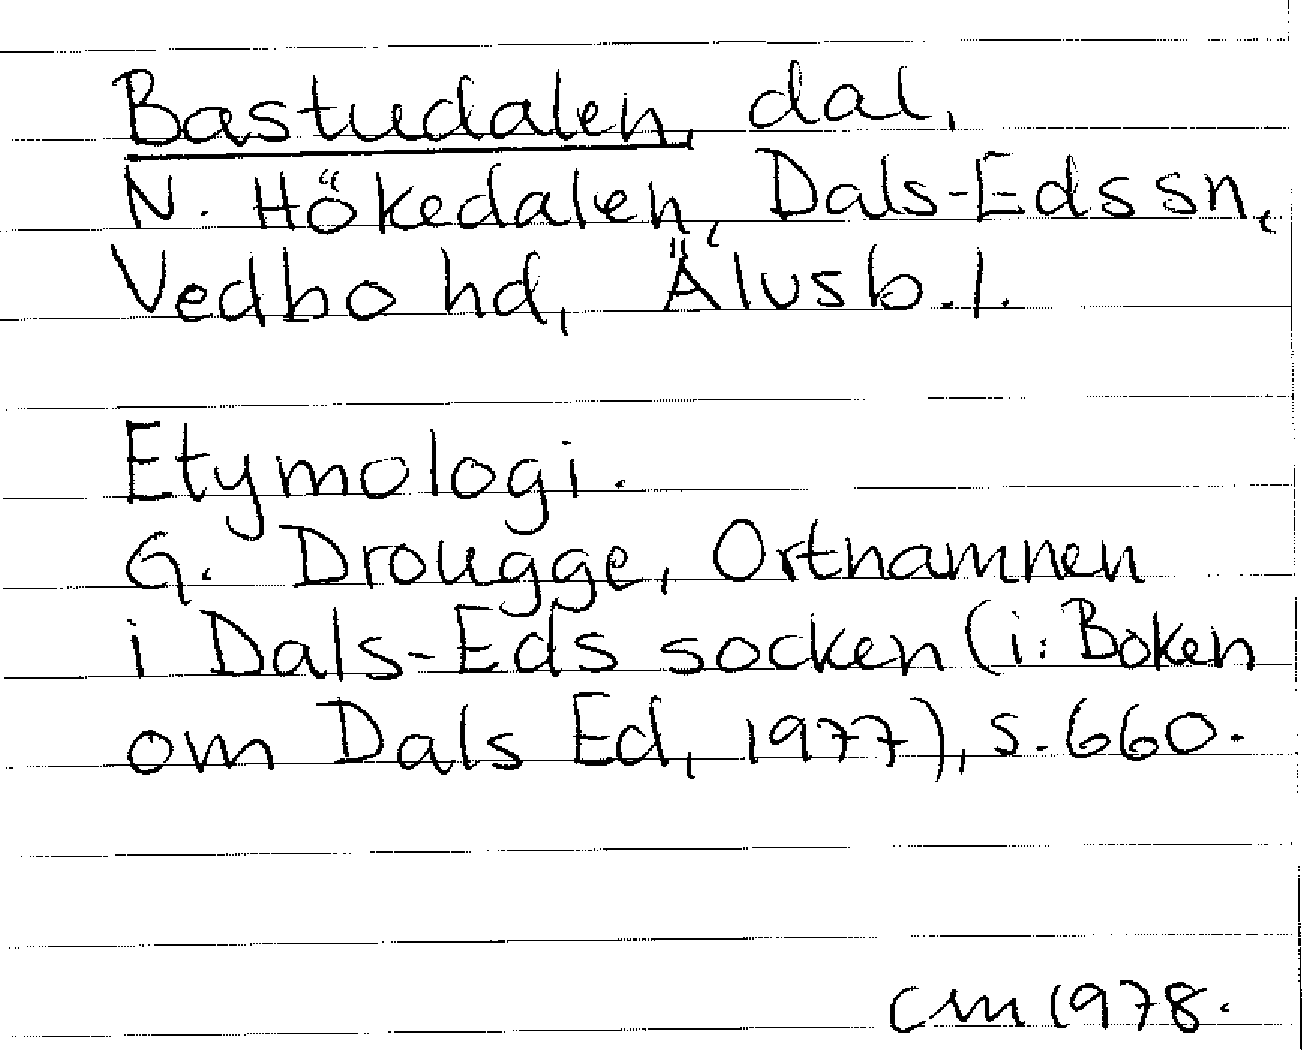 Bastudalen, dal,
N. Hökedalen, Dals-Eds sn,
Vedbo hd, Älvsb. l.
Etymologi.
G. Drougge, Ortnamnen
i Dals-Eds socken (i: Boken
om Dals Ed, 1977), s. 660.
CM 1978.